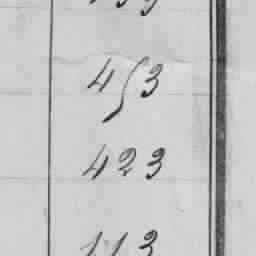 453
423
113